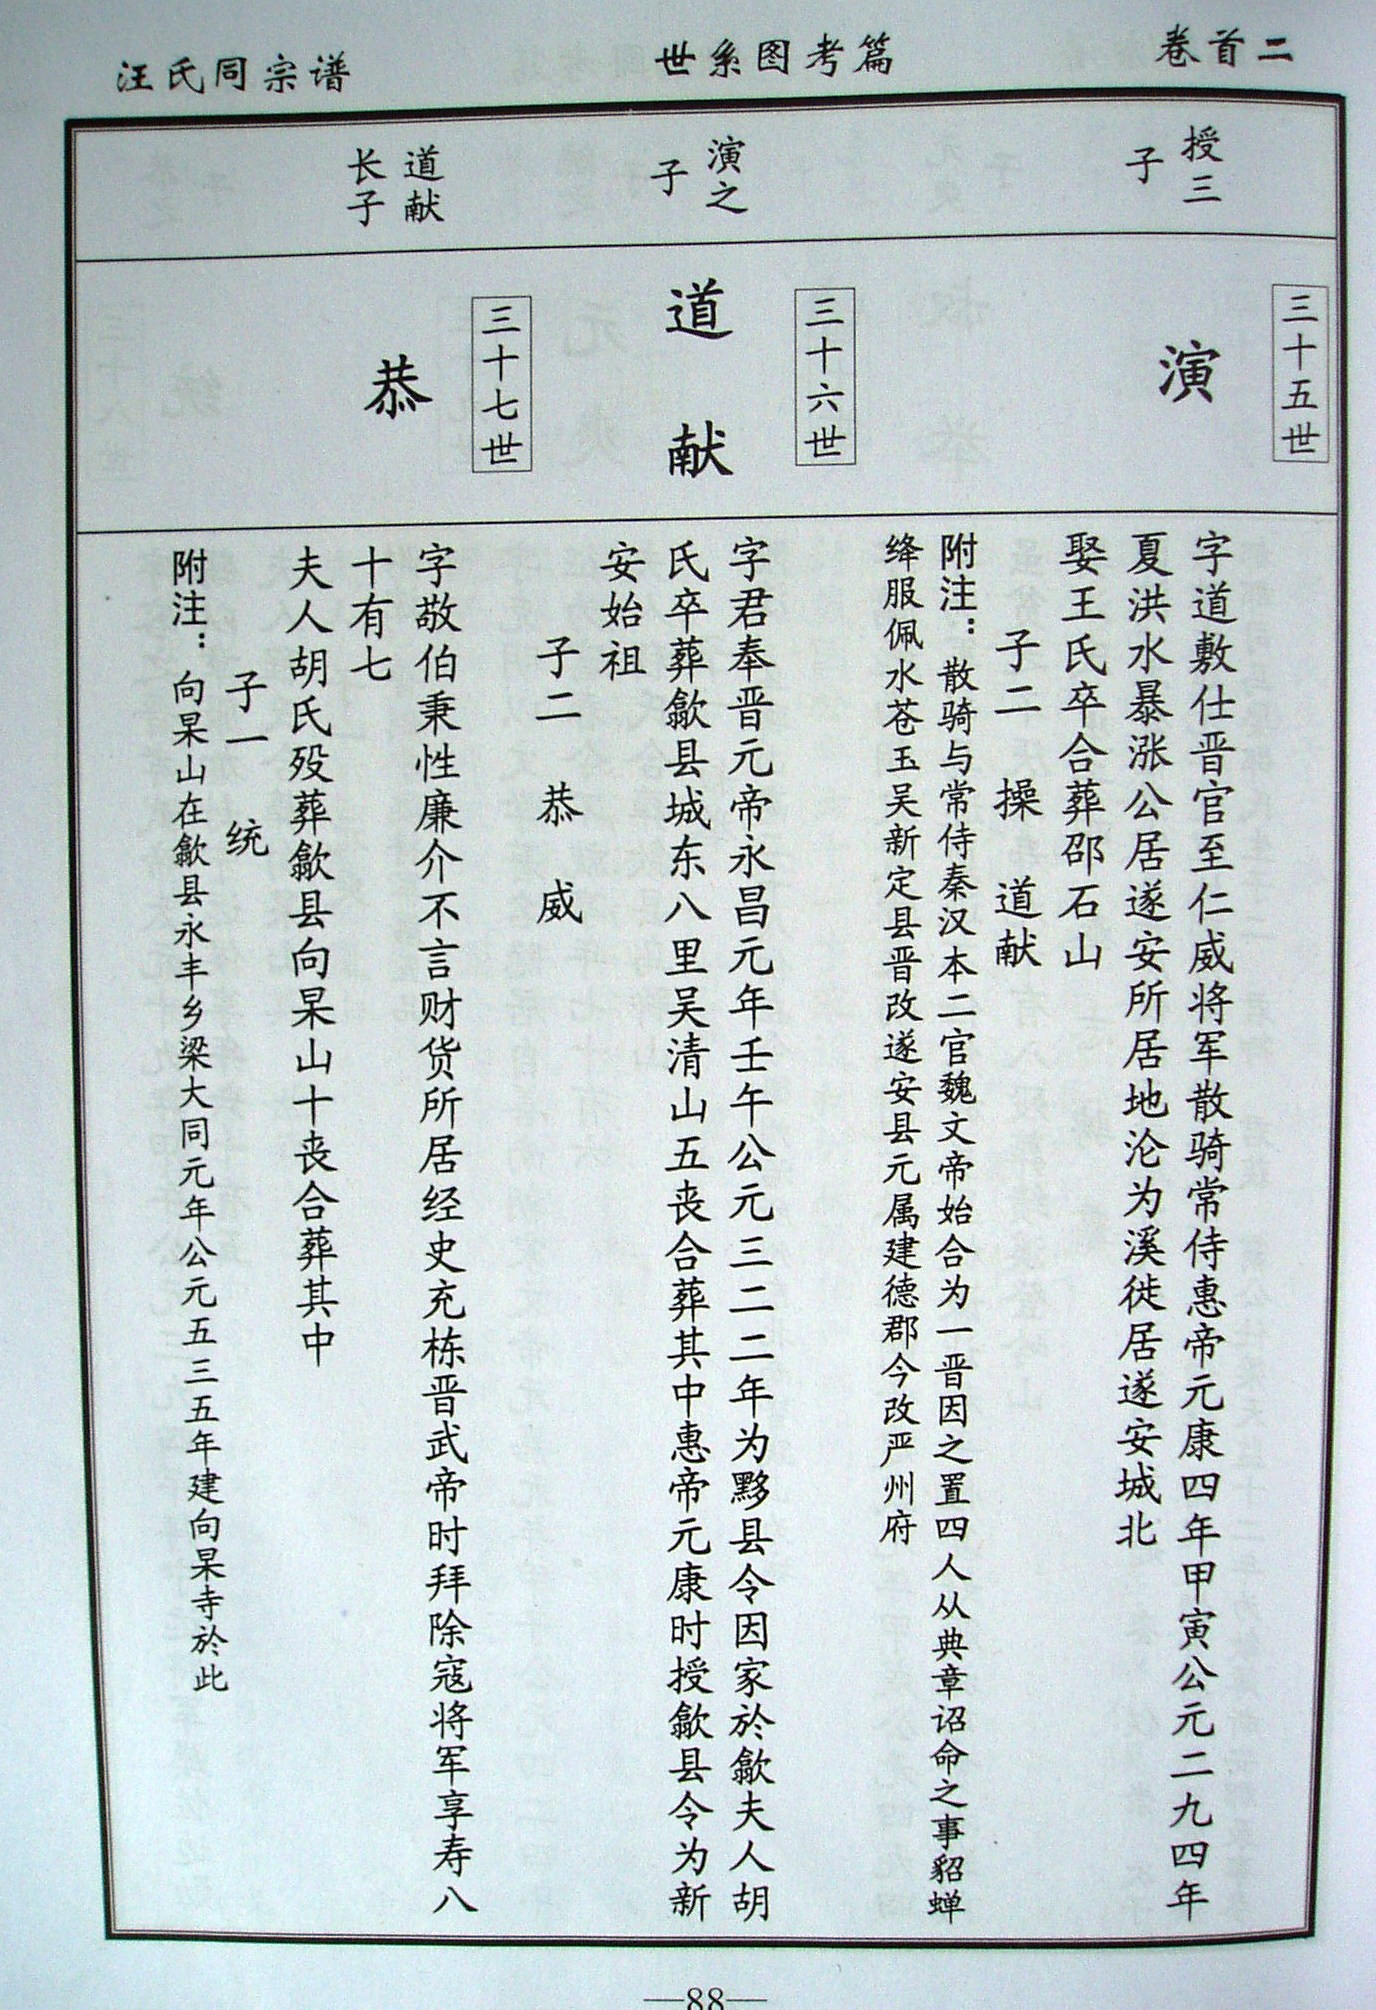 卷首二
世系图考篇
汪氏同宗谱
授三
子
三十五世
演
字道敷仕晋官至仁威将军散骑常侍惠帝元康四年甲寅公元二九四年
夏洪水暴涨公居遂安所居地沦为溪徙居遂安城北
娶王氏卒合葬邵石山
子二 操 道献
附注：散骑与常侍秦汉本二官魏文帝始合为一晋因之置四人从典章诏命之事貂蝉
绛服佩水苍玉吴新定县晋改遂安县元属建德郡今改严州府
演之
子
三十六世
道献
字君奉晋元帝永昌元年壬午公元三二二年为黟县令因家於歙夫人胡
氏卒葬歙县城东八里吴清山五丧合葬其中惠帝元康时授歙县令为新
安始祖
子二 恭 威
道献
长子
三十七世
恭
字敬伯秉性廉介不言财货所居经史充栋晋武帝时拜除寇将军享寿八
十有七
夫人胡氏殁葬歙县向杲山十丧合葬其中
子一 统
附注：向杲山在歙县永丰乡梁大同元年公元五三五年建向杲寺於此
—88—